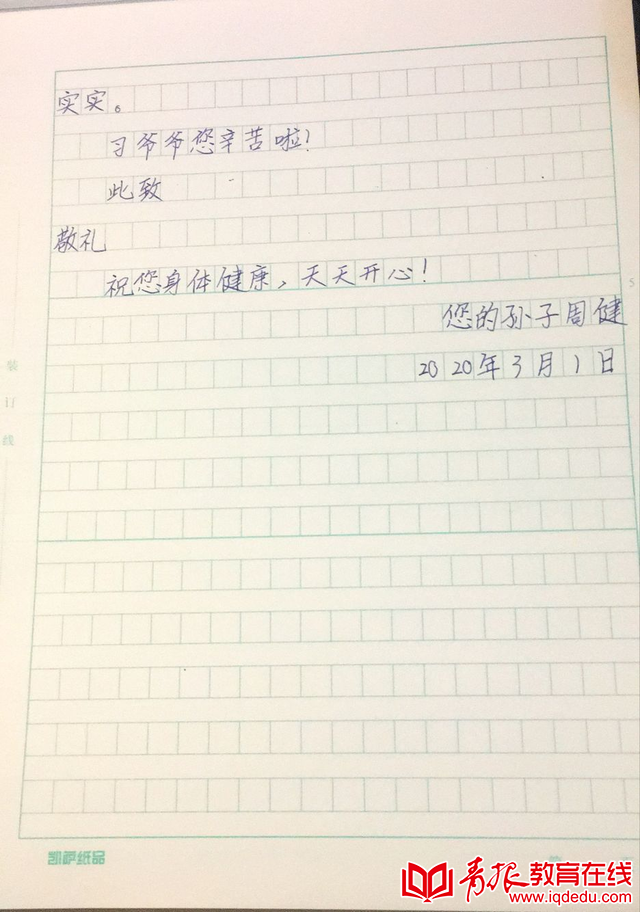 实实。
习爷爷您辛苦啦！
此致
敬礼
祝您身体健康，天天开心！
您的孙子周健
2020年3月1日
5
装
订
线
凯萨纸品
青报教育在线
www.iqdedu.com